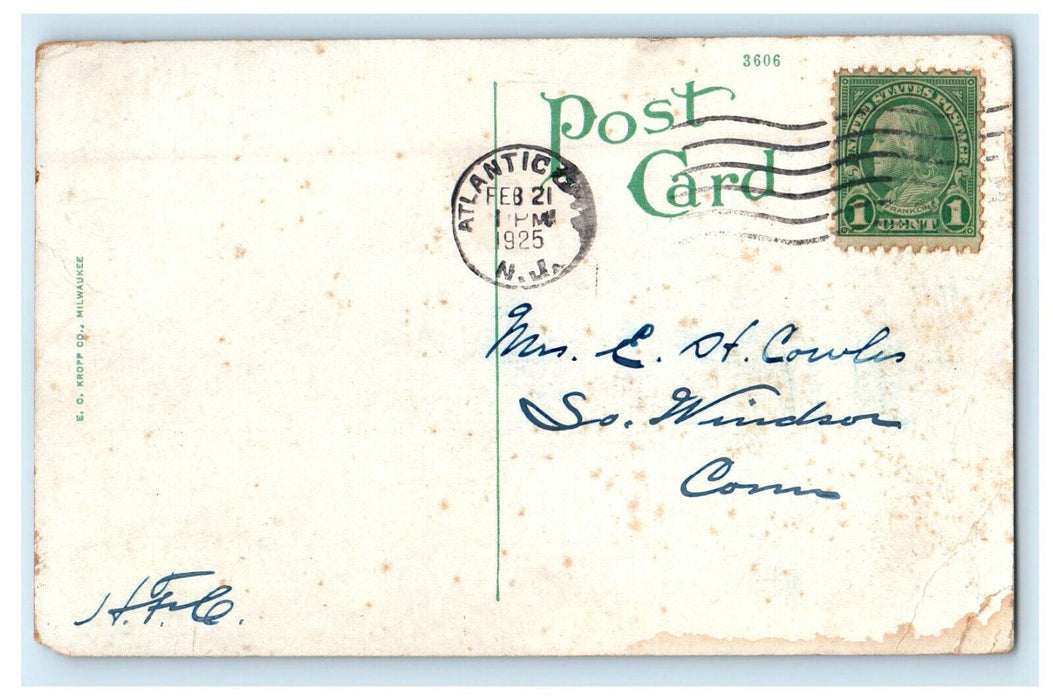 3606
Post
Card
UNITED STATES POSTAGE
FRANKLIN
1 CENT 1
ATLANTIC
FEB 21
1 PM
1925
N.J.
E. C. KROPP CO., MILWAUKEE
Mrs. E. H. Cowles
So. Windsor
Conn
H.F.C.